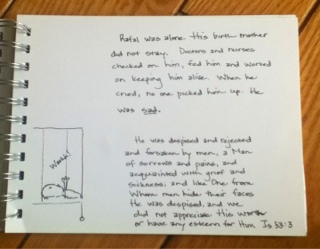 Rafal was alone. His birth mother
did not stay. Doctors and nurses
checked on him, fed him and worked
on keeping him alive. When he
cried, no one picked him up. He
was sad.
Waah!
He was despised and rejected
and forsaken by men, a Man
of sorrows and pains, and
acquainted with grief and
sickness; and like One from
Whom men hide their faces
He was despised, and we
did not appreciate His worth
or have any esteem for Him. Is 53:3